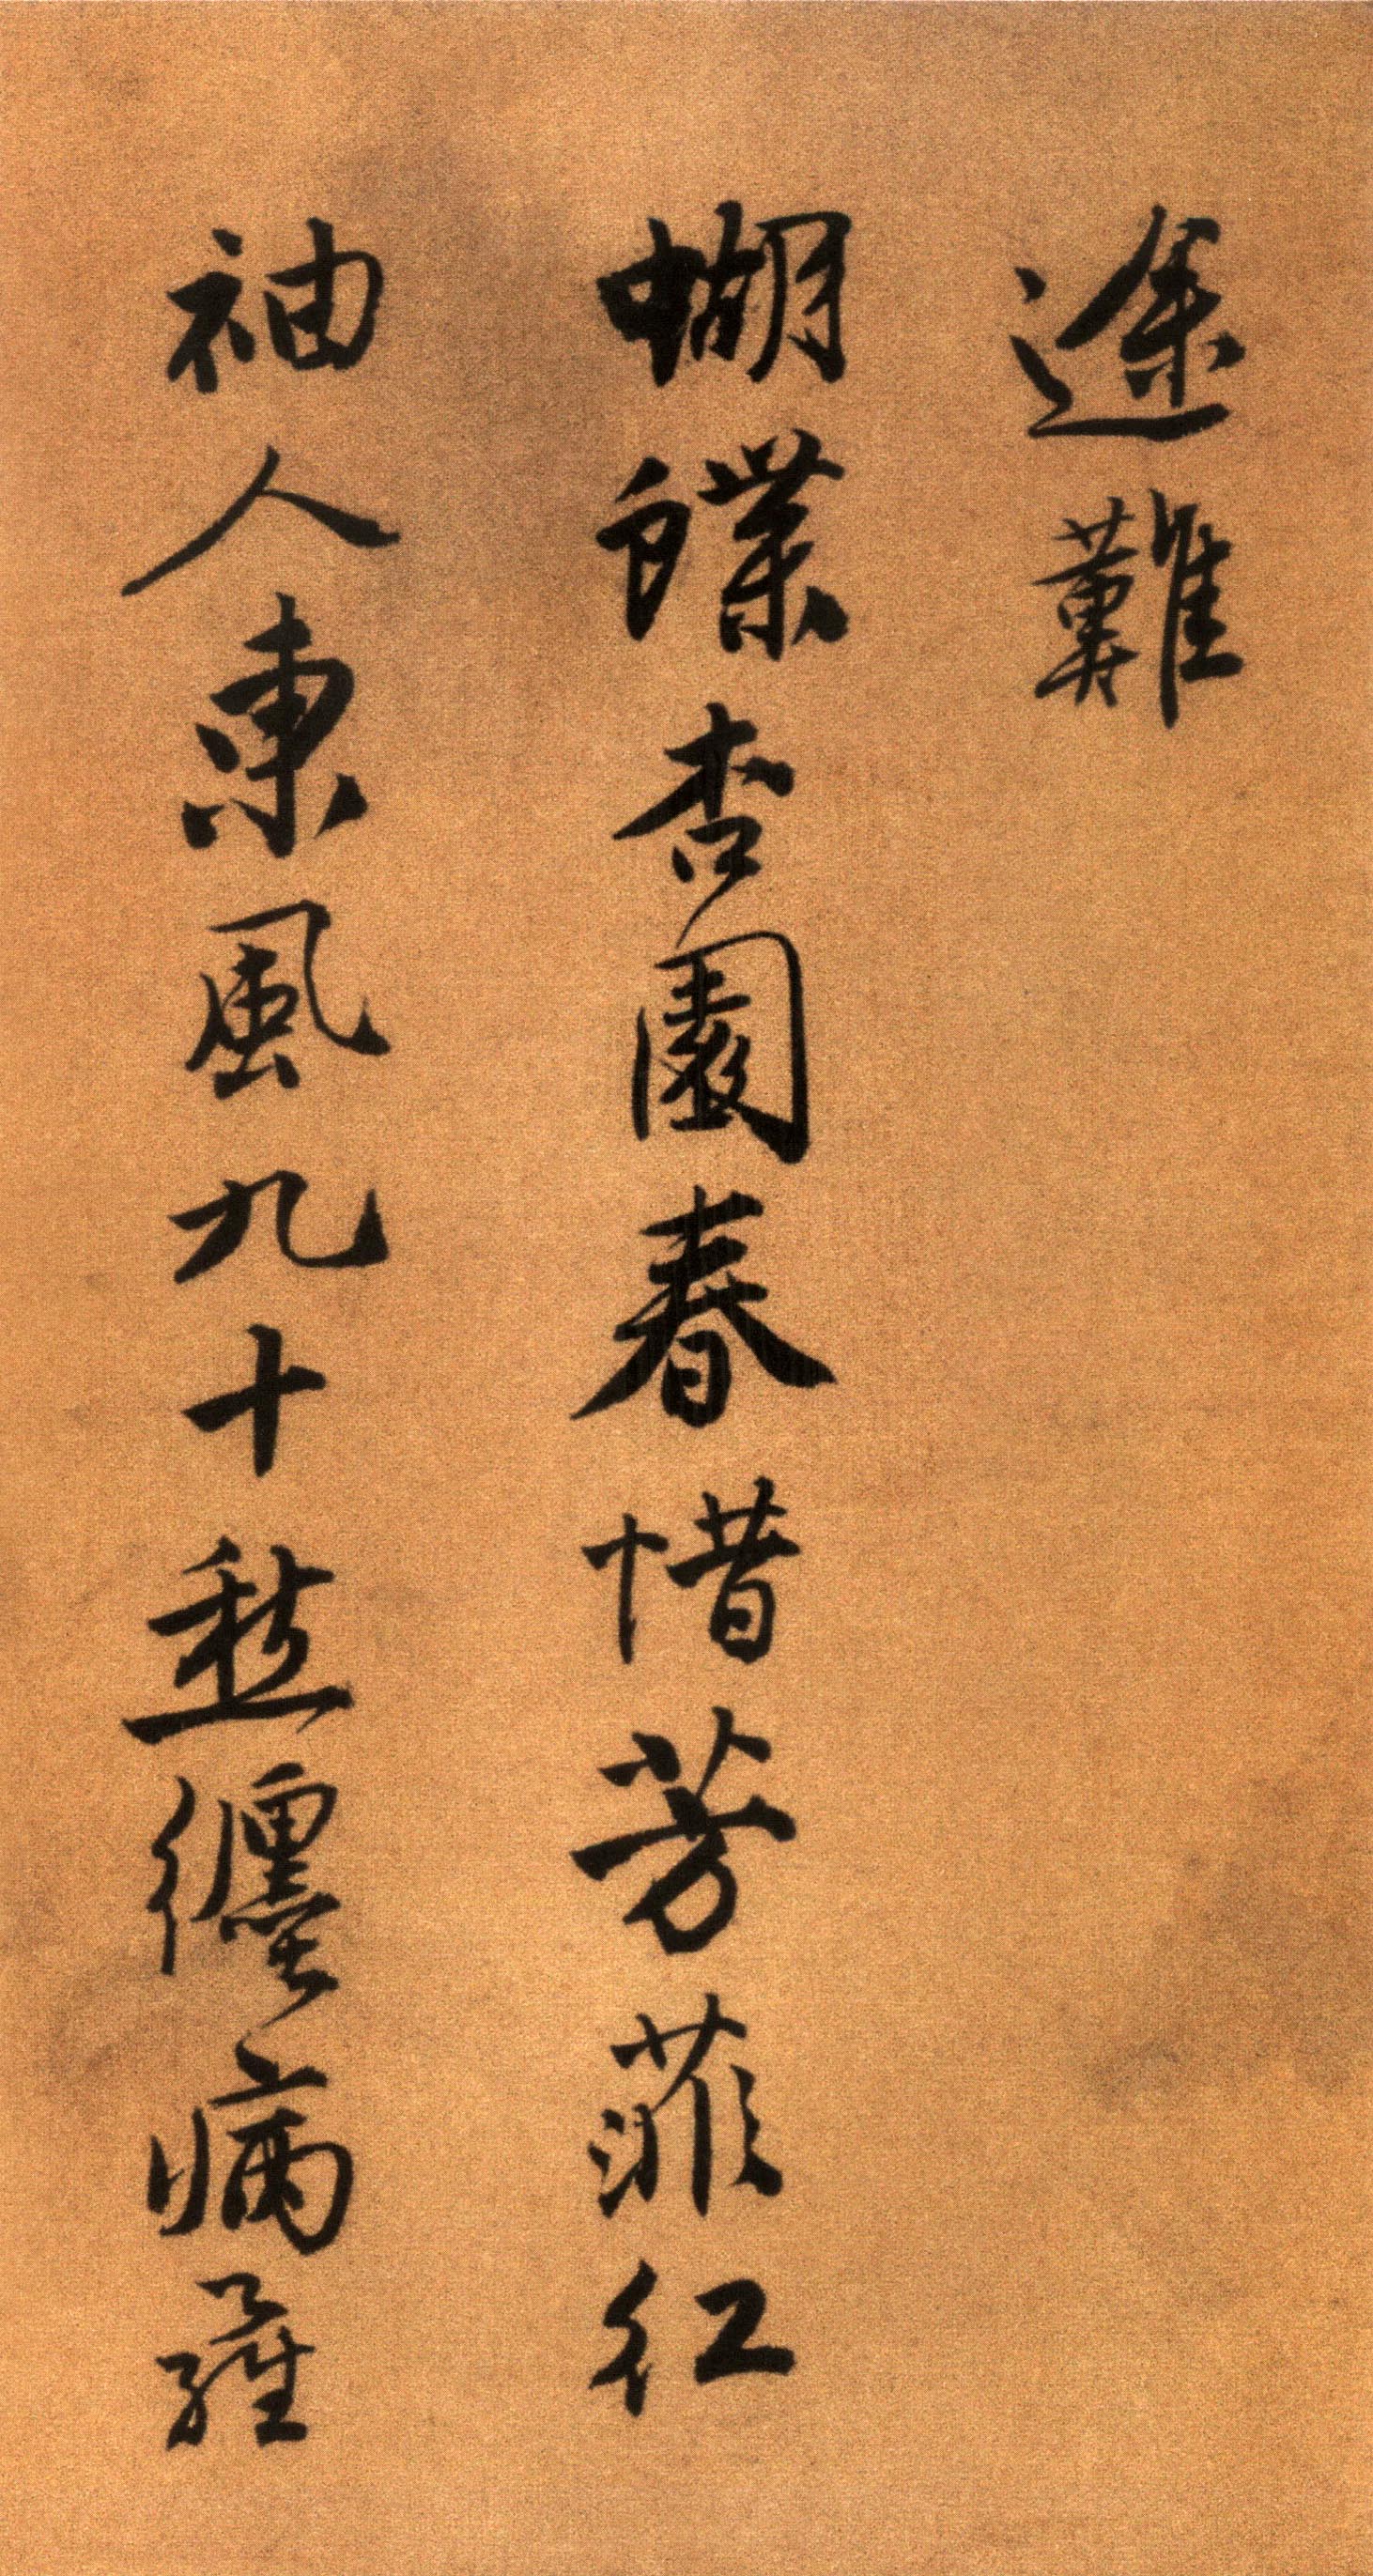 途難
蝴蝶杏園春惜芳菲紅
袖人東風九十愁纏病羅